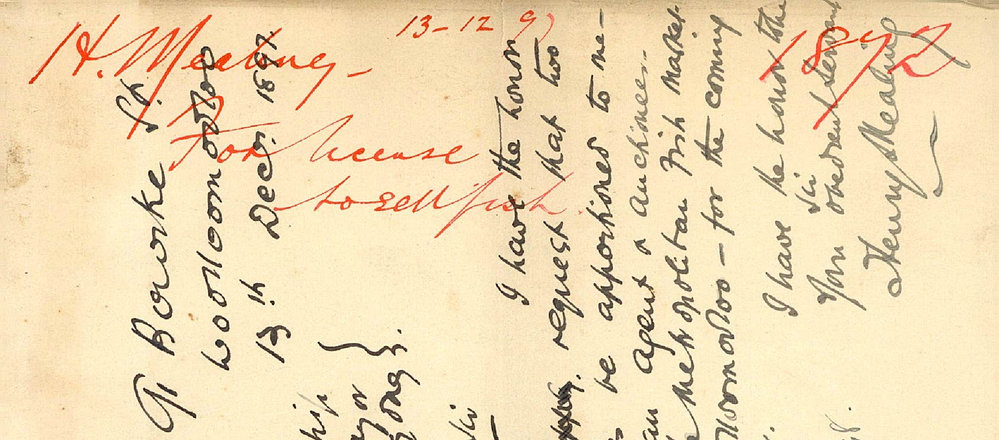 H. Mealing
13-12 97
1872
For license
to sell fish
91 Bourke St.
Woolloomooloo
13th Decr. 1897
ship
yor
ney
I have the honor
request that two
be apportioned to me
an agent & auctioneer
Metropolitan Fish Market
loomooloo – for the coming
I have the honor to be
Sir
Your obedient servant
Henry Mealing